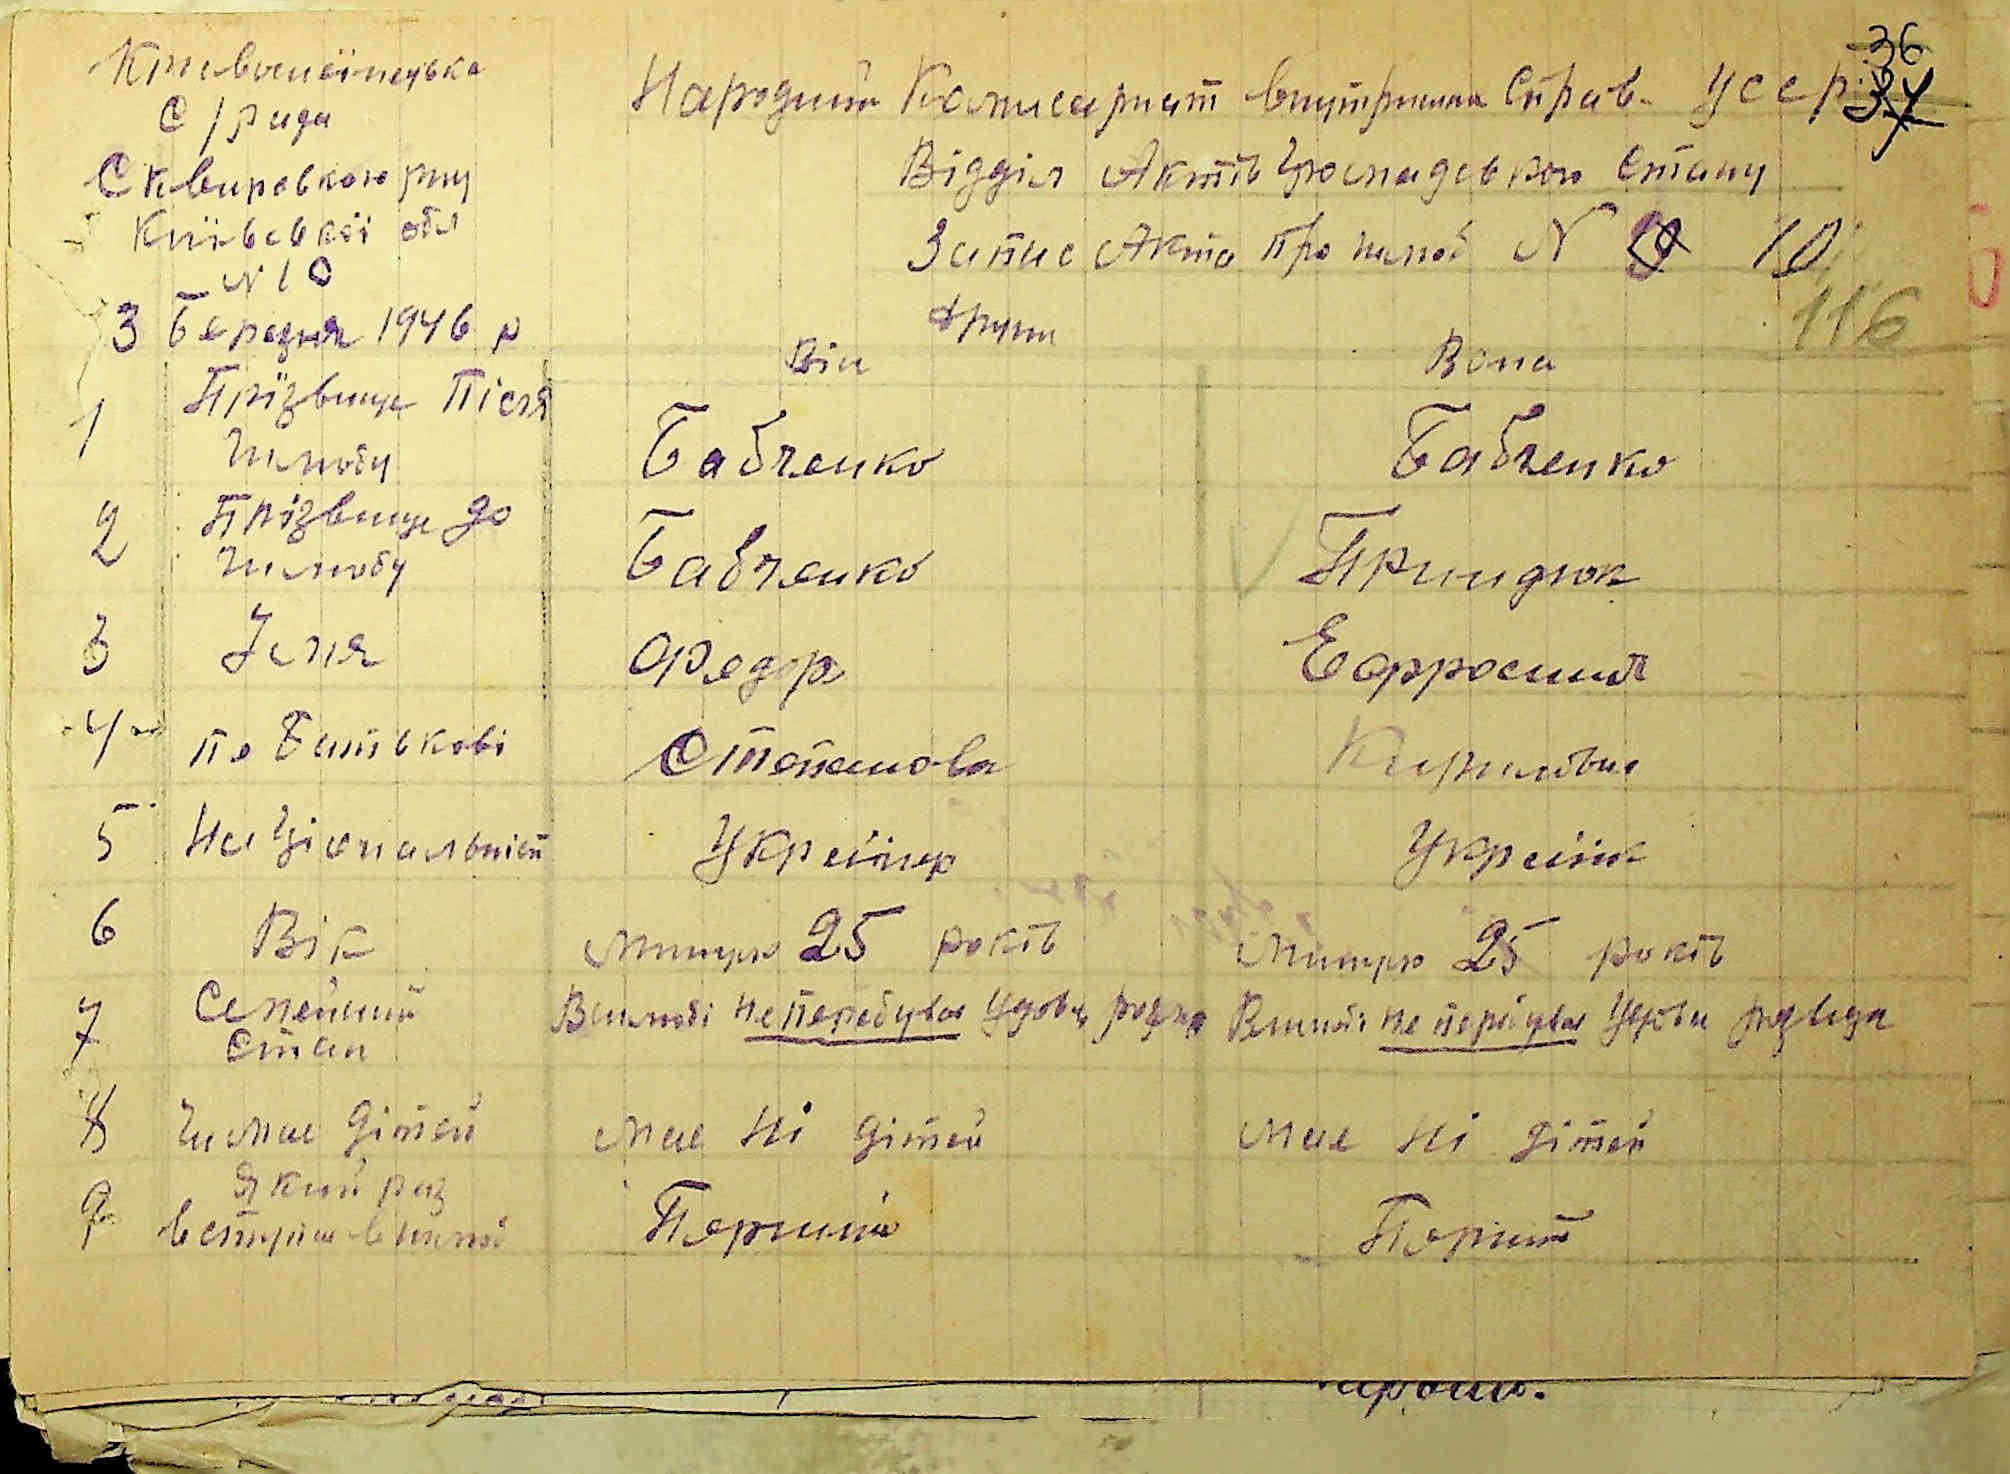 36
37
Кривошеїнецька
С/рада
Сквирського рну
Київської обл
N 10
3 Березня 1946 р
Народний Комисариат внутришних Справ УССР.
Відділ Актів Громадського Стану
Запис Акта про шлюб N 10
116
Други
Він Вона
1 Прізвище Після шлюбу Бабченко Бабченко
2 Прізвище до шлюбу Бабченко Гриндюк
3 Імня Федор Ефросиня
4 по Батькові Степанова Кириловна
5 Національніст Українер Українк
6 Вік минуло 25 років минуло 25 років
7 Семейний Стан Вшлюбі не перебував Удовец розвід Вшлюбі не перебував Удова розвида
8 Чи має дітей має ні дітей має ні дітей
9 Який раз вступає в шлюб Перший Перший